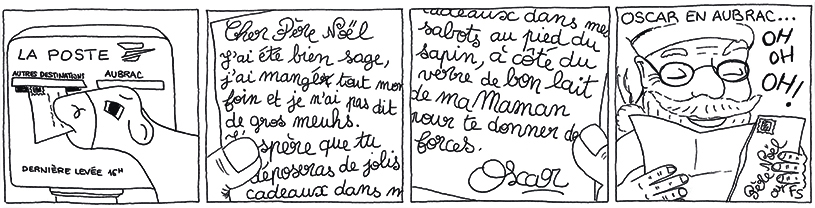 LA POSTE
AUTRES DESTINATIONS
AUBRAC
DERNIÈRE LEVÉE 16H
Cher Père Noël
j'ai été bien sage,
j'ai mangéx tout mon
foin et je n'ai pas dit
de gros meuhs.
J'espère que tu
déposeras de jolis
cadeaux dans m
cadeaux dans mes
sabots au pied du
sapin, à côté du
verre de bon lait
de ma Maman
pour te donner de
forces.
Oscar
OSCAR EN AUBRAC...
OH
OH
OH!
Père Noël